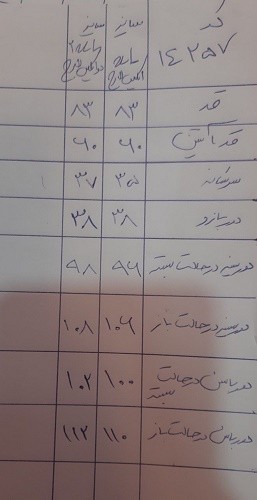 کد ۱۴۲۵۷ سایز سایز ۲
قد ۸۳ ۸۳
قد آستین ۶۰ ۶۰
سرشانه ۳۵ ۳۷
دور بازو ۳۸ ۳۸
دور سینه در حالت بسته ۹۶ ۹۸
دور سینه در حالت باز ۱۰۶ ۱۰۸
دور باسن در حالت بسته ۱۰۰ ۱۰۲
دور باسن در حالت باز ۱۱۰ ۱۱۲